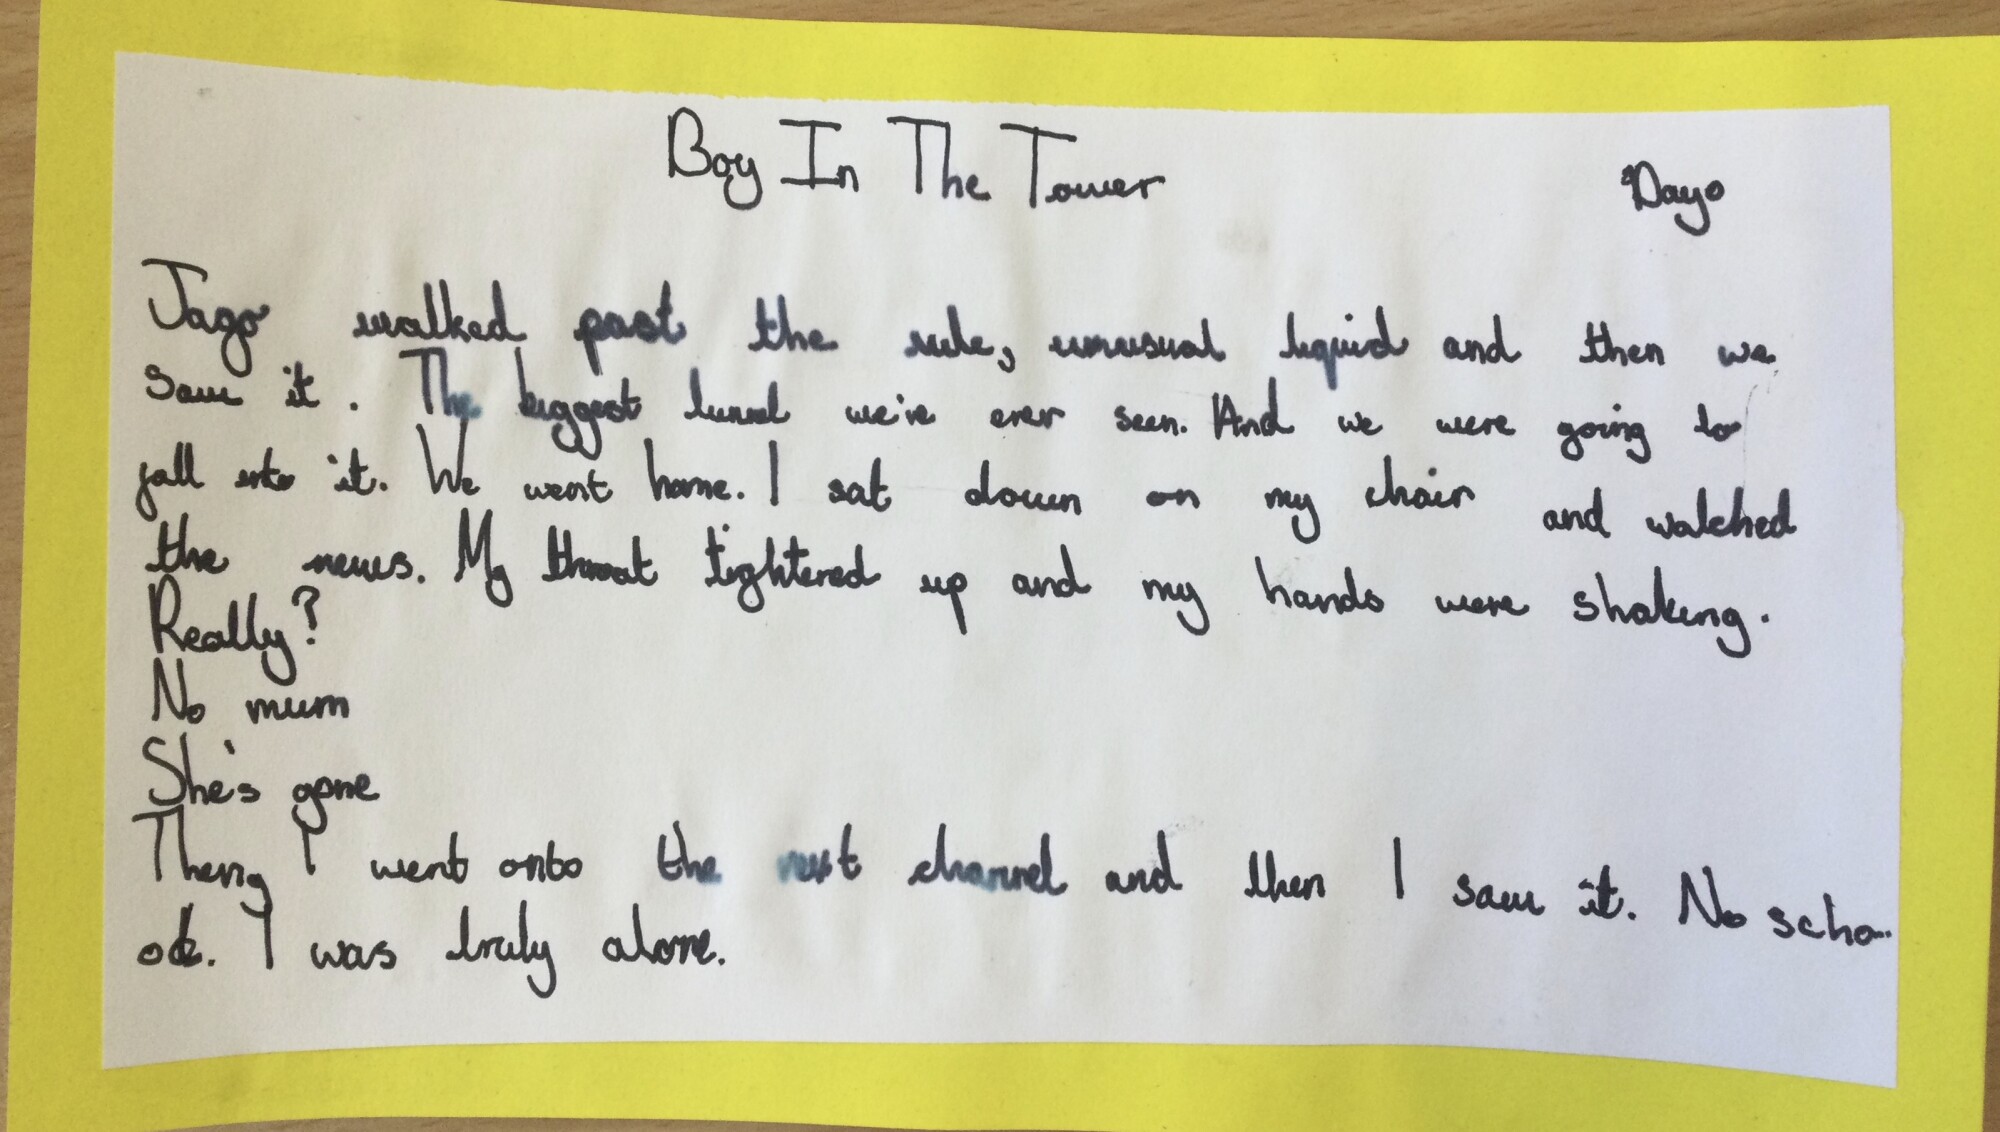 Boy In The Tower
Dayo
Jago walked past the wide, unusual liquid and then we
saw it. The biggest tunnel we've ever seen. And we were going to
fall into it. We went home. I sat down on my chair and watched
the news. My throat tightered up and my hands were shaking.
Really?
No mum
She's gone
Then, I went onto the next channel and then I saw it. No scho-
ol. I was truly alone.